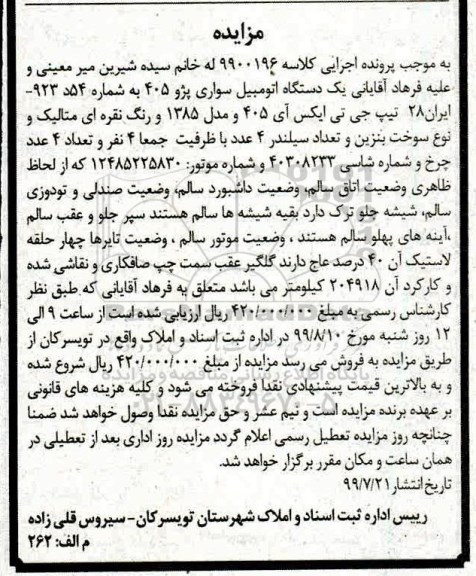 مزایده
به موجب پرونده اجرایی کلاسه ۹۹۰۰۱۹۶ له خانم سیده شیرین میر معینی و
علیه فرهاد آقایانی یک دستگاه اتومبیل سواری پژو ۴۰۵ به شماره ۵۴د ۹۲۳-
ایران۲۸ تیپ جی تی ایکس آی ۴۰۵ و مدل ۱۳۸۵ و رنگ نقره ای متالیک و
نوع سوخت بنزین و تعداد سیلندر ۴ عدد با ظرفیت جمعا ۴ نفر و تعداد ۴ عدد
چرخ و شماره شاسی ۴۰۳۰۸۲۳۳ و شماره موتور: ۱۲۴۸۵۲۲۵۸۳۰ که از لحاظ
ظاهری وضعیت اتاق سالم، وضعیت داشبورد سالم، وضعیت صندلی و تودوزی
سالم، شیشه جلو ترک دارد بقیه شیشه ها سالم هستند سپر جلو و عقب سالم
،آینه های پهلو سالم هستند ، وضعیت موتور سالم ، وضعیت تایرها چهار حلقه
لاستیک آن ۴۰ درصد عاج دارند گلگیر عقب سمت چپ صافکاری و نقاشی شده
و کارکرد آن ۲۰۴۹۱۸ کیلومتر می باشد متعلق به فرهاد آقایانی که طبق نظر
کارشناس رسمی به مبلغ ۴۲۰/۰۰۰/۰۰۰ ریال ارزیابی شده است از ساعت ۹ الی
۱۲ روز شنبه مورخ ۹۹/۸/۱۰ در اداره ثبت اسناد و املاک واقع در تویسرکان از
طریق مزایده به فروش می رسد مزایده از مبلغ ۴۲۰/۰۰۰/۰۰۰ ریال شروع شده
و به بالاترین قیمت پیشنهادی نقدا فروخته می شود و کلیه هزینه های قانونی
بر عهده برنده مزایده است و نیم عشر و حق مزایده نقدا وصول خواهد شد ضمنا
چنانچه روز مزایده تعطیل رسمی اعلام گردد مزایده روز اداری بعد از تعطیلی در
همان ساعت و مکان مقرر برگزار خواهد شد.
تاریخ انتشار ۹۹/۷/۲۱
رییس اداره ثبت اسناد و املاک شهرستان تویسرکان - سیروس قلی زاده
م الف: ۲۶۲